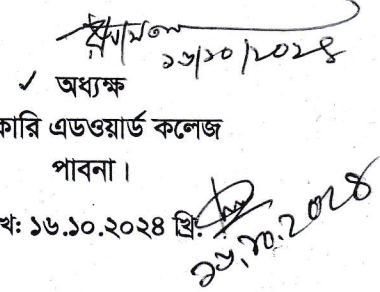 ১৬/১০/২০২৪
✓ অধ্যক্ষ
কারি এডওয়ার্ড কলেজ
পাবনা।
খ: ১৬.১০.২০২৪ খ্রি:
১৬.১০.২০২৪